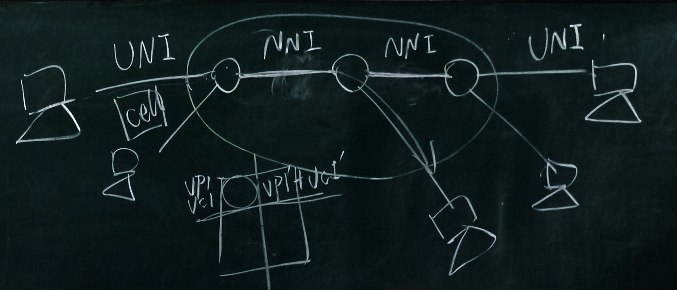 UNI NNI NNI UNI
cell
VPI VPI' VCI'
VCI